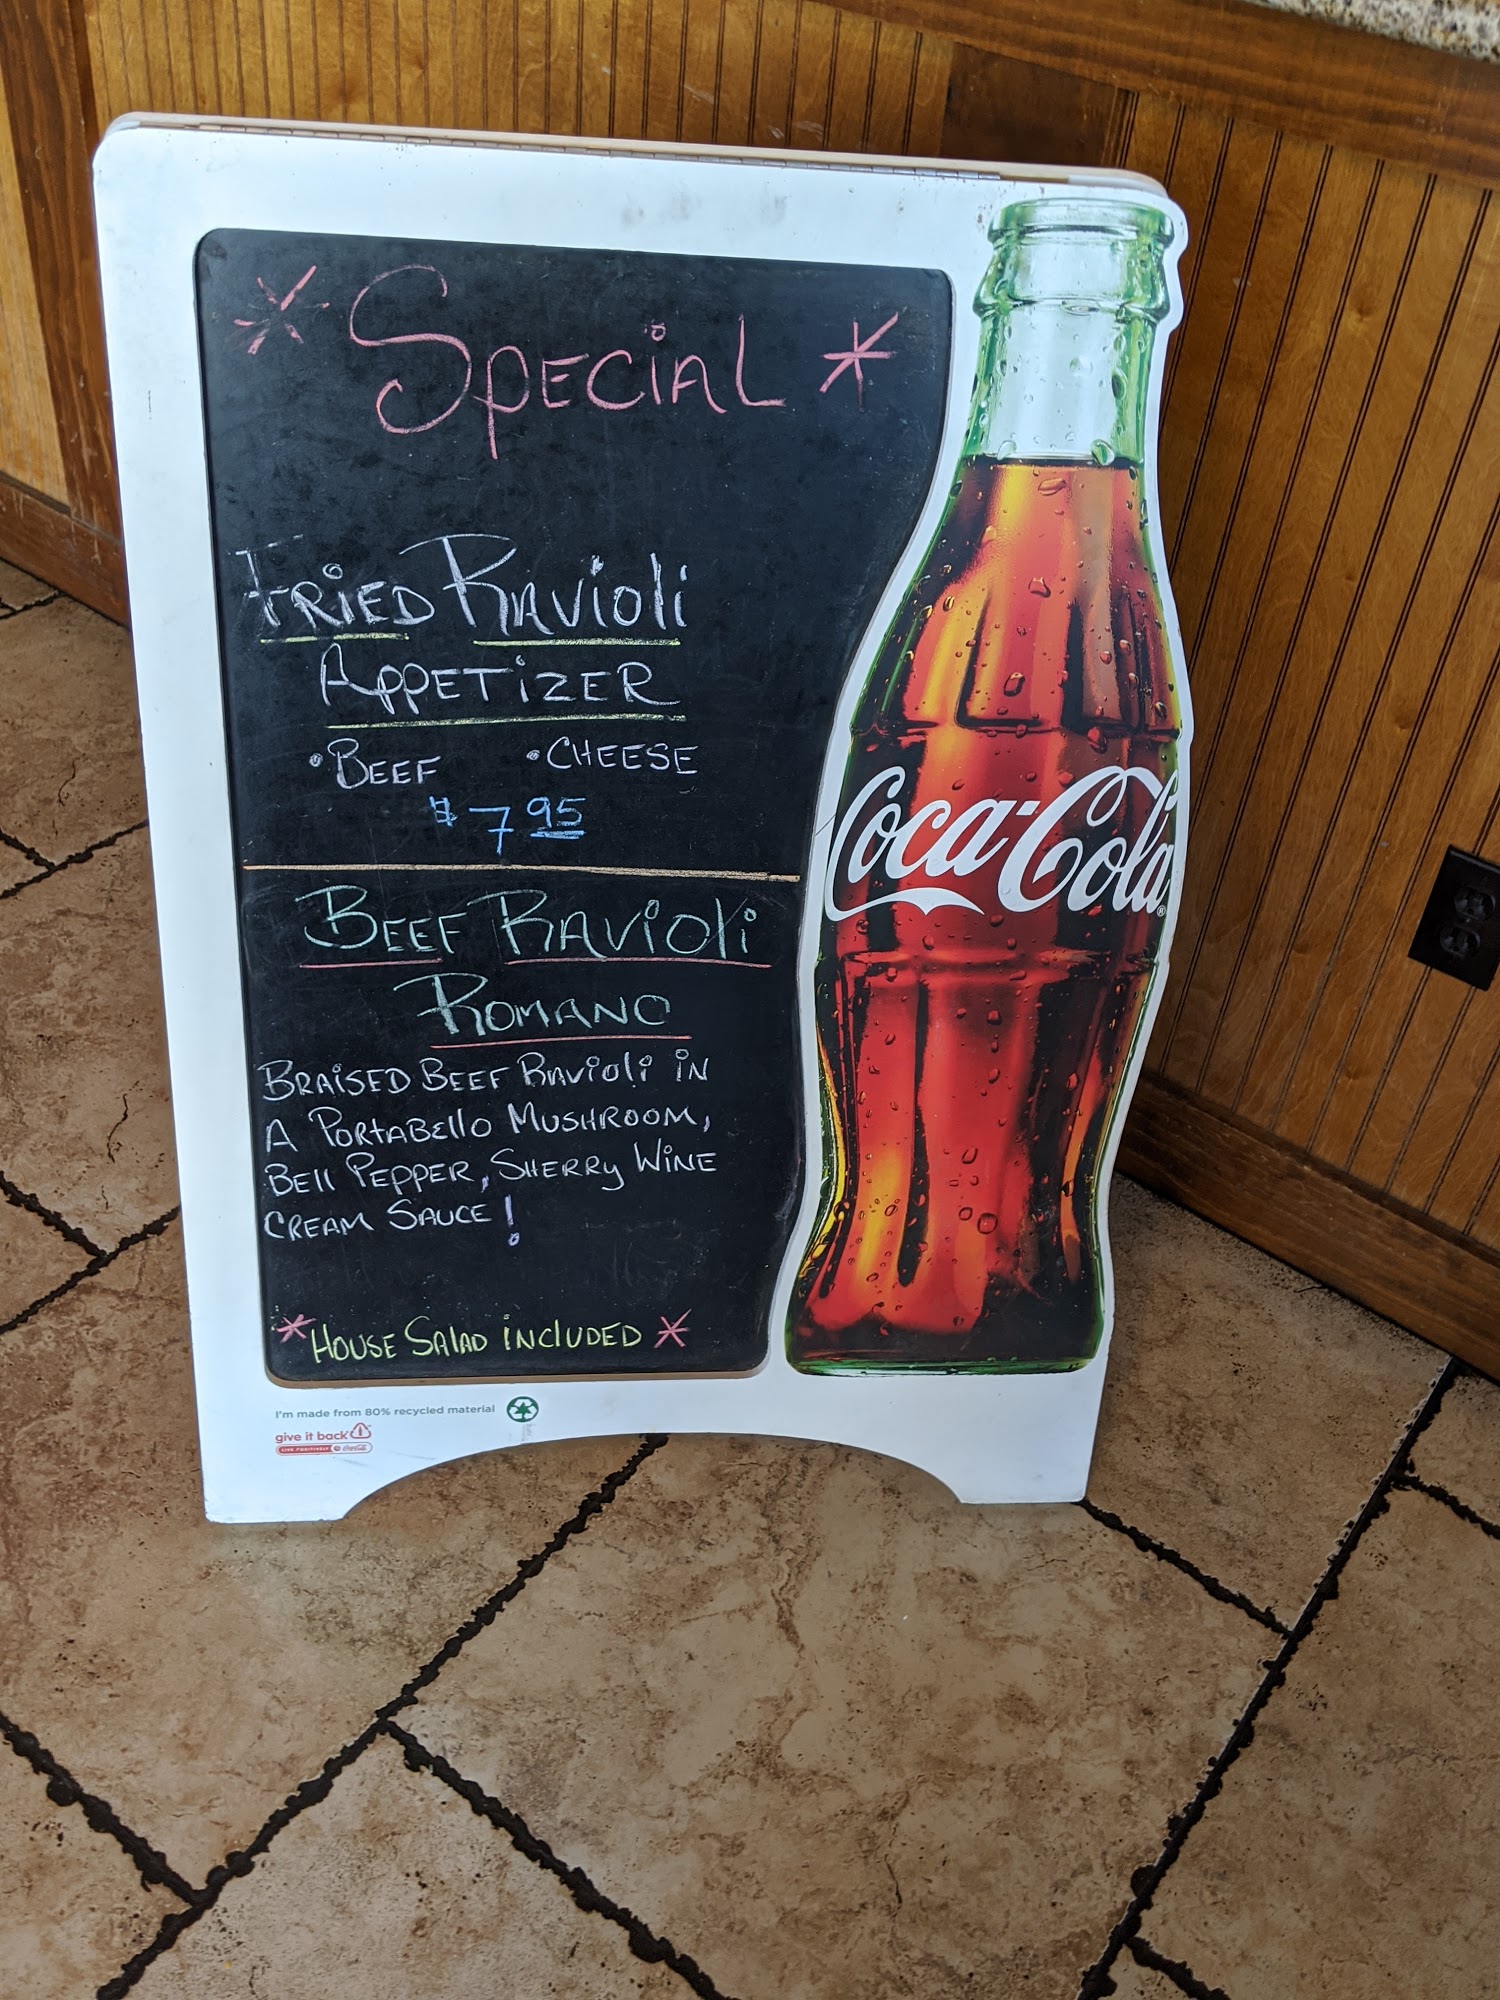 * Special *
Fried Ravioli
Appetizer
• Beef • Cheese
$7.95
Beef Ravioli
Romano
Braised Beef Ravioli in
A Portabello Mushroom,
Bell Pepper, Sherry Wine
Cream Sauce!
* House Salad included *
Coca-Cola®
I'm made from 80% recycled material
give it back
LIVE POSITIVELY Coca-Cola